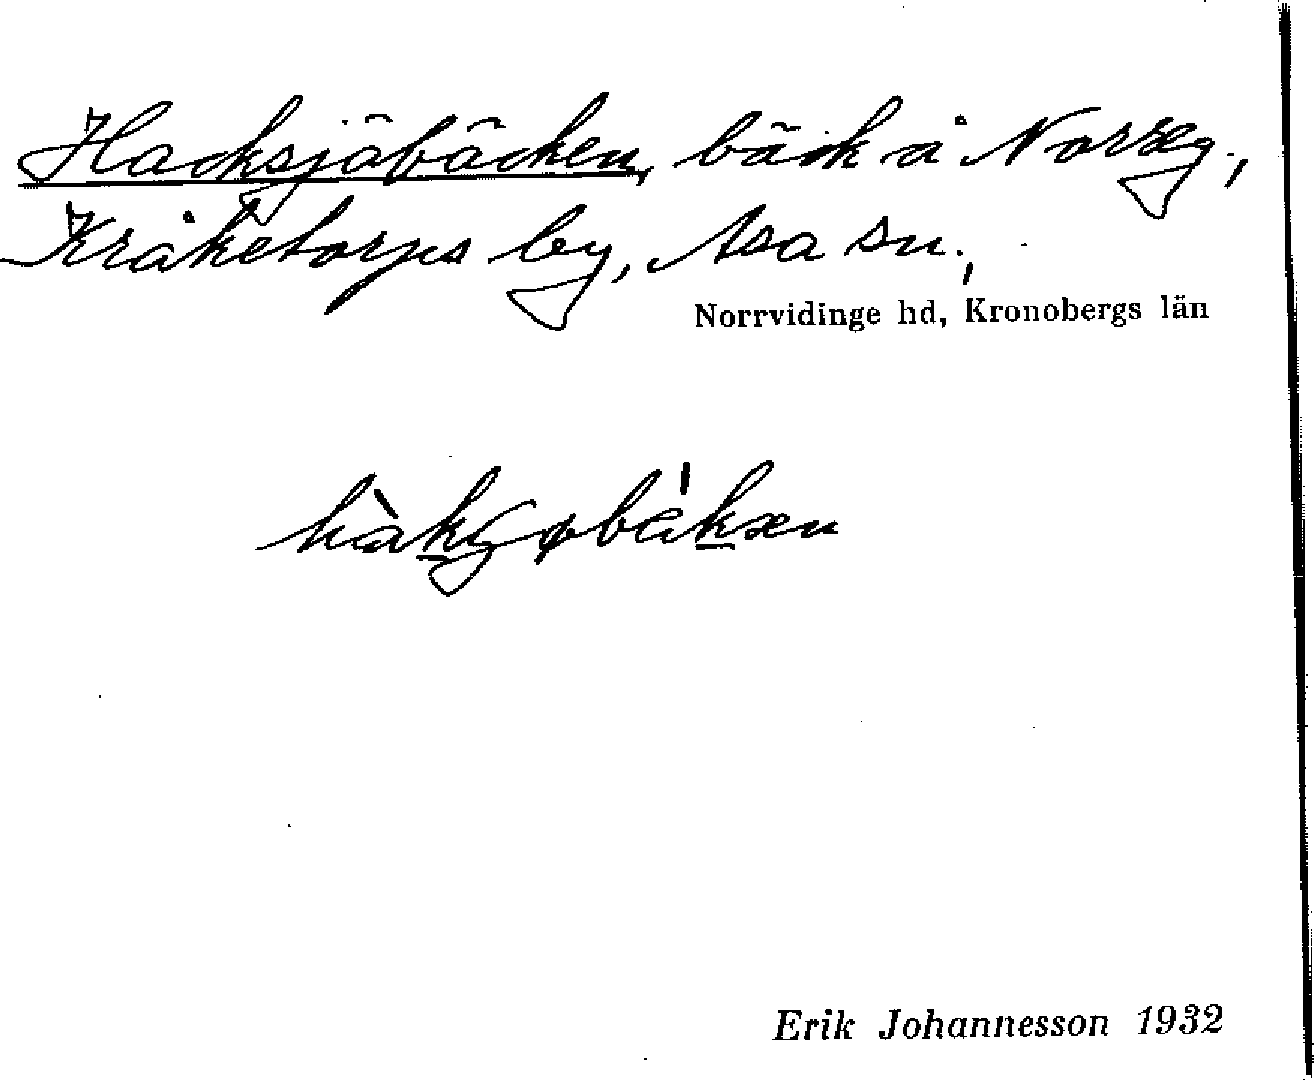 Hacksjöbäcken, bäck å Norreg.,
Kråketorps by, Asa sn.,
Norrvidinge hd, Kronobergs län
Erik Johannesson 1932